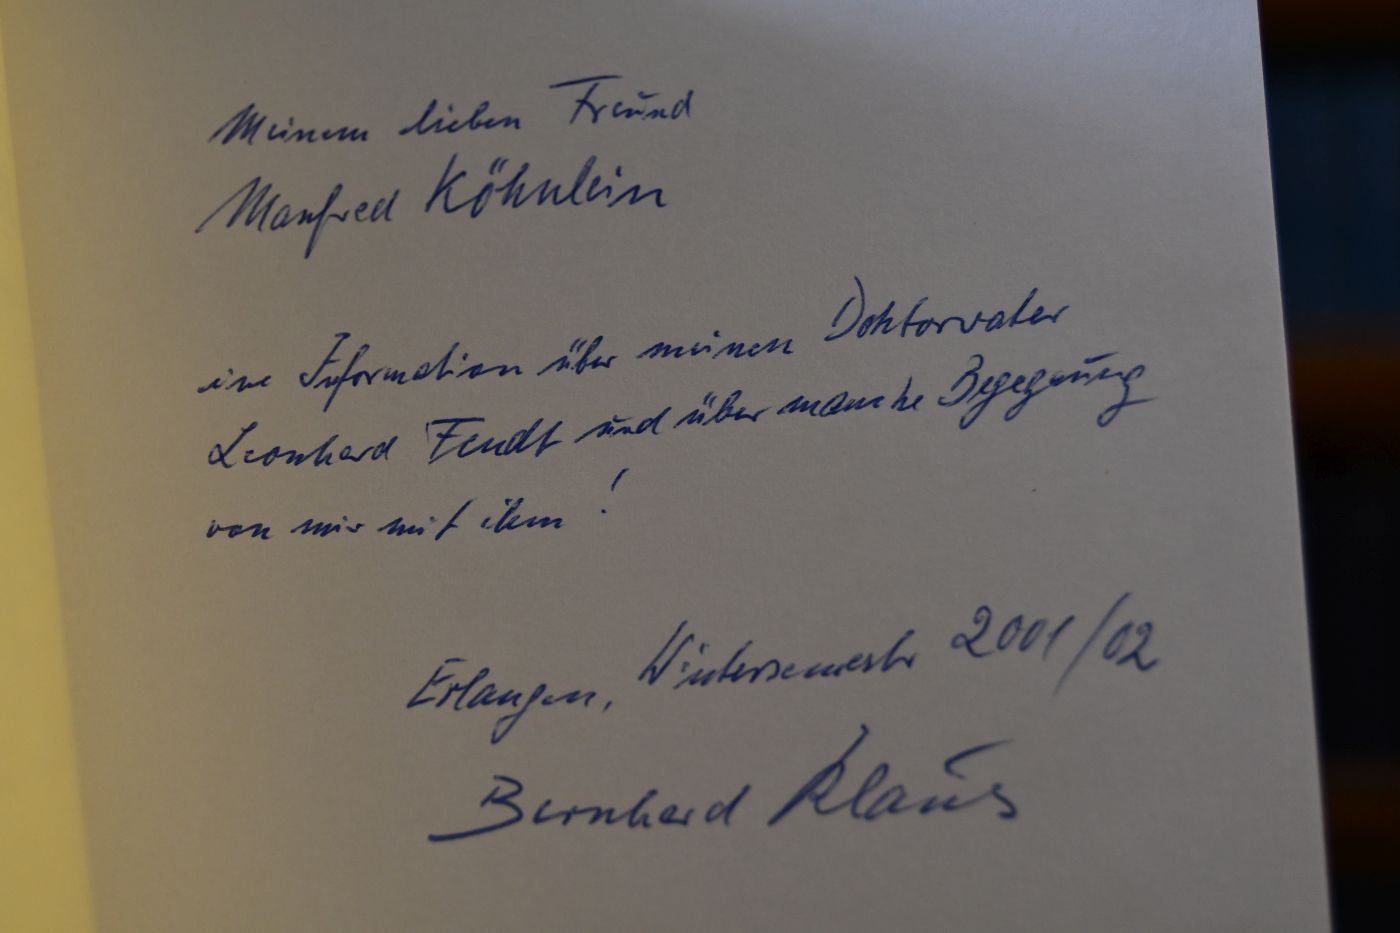 Meinem lieben Freund
Manfred Köhnlein
eine Information über meinen Doktorvater
Leonhard Fendt und über manche Begegnung
von mir mit ihm!
Erlangen, Wintersemester 2001/02
Bernhard Klaus